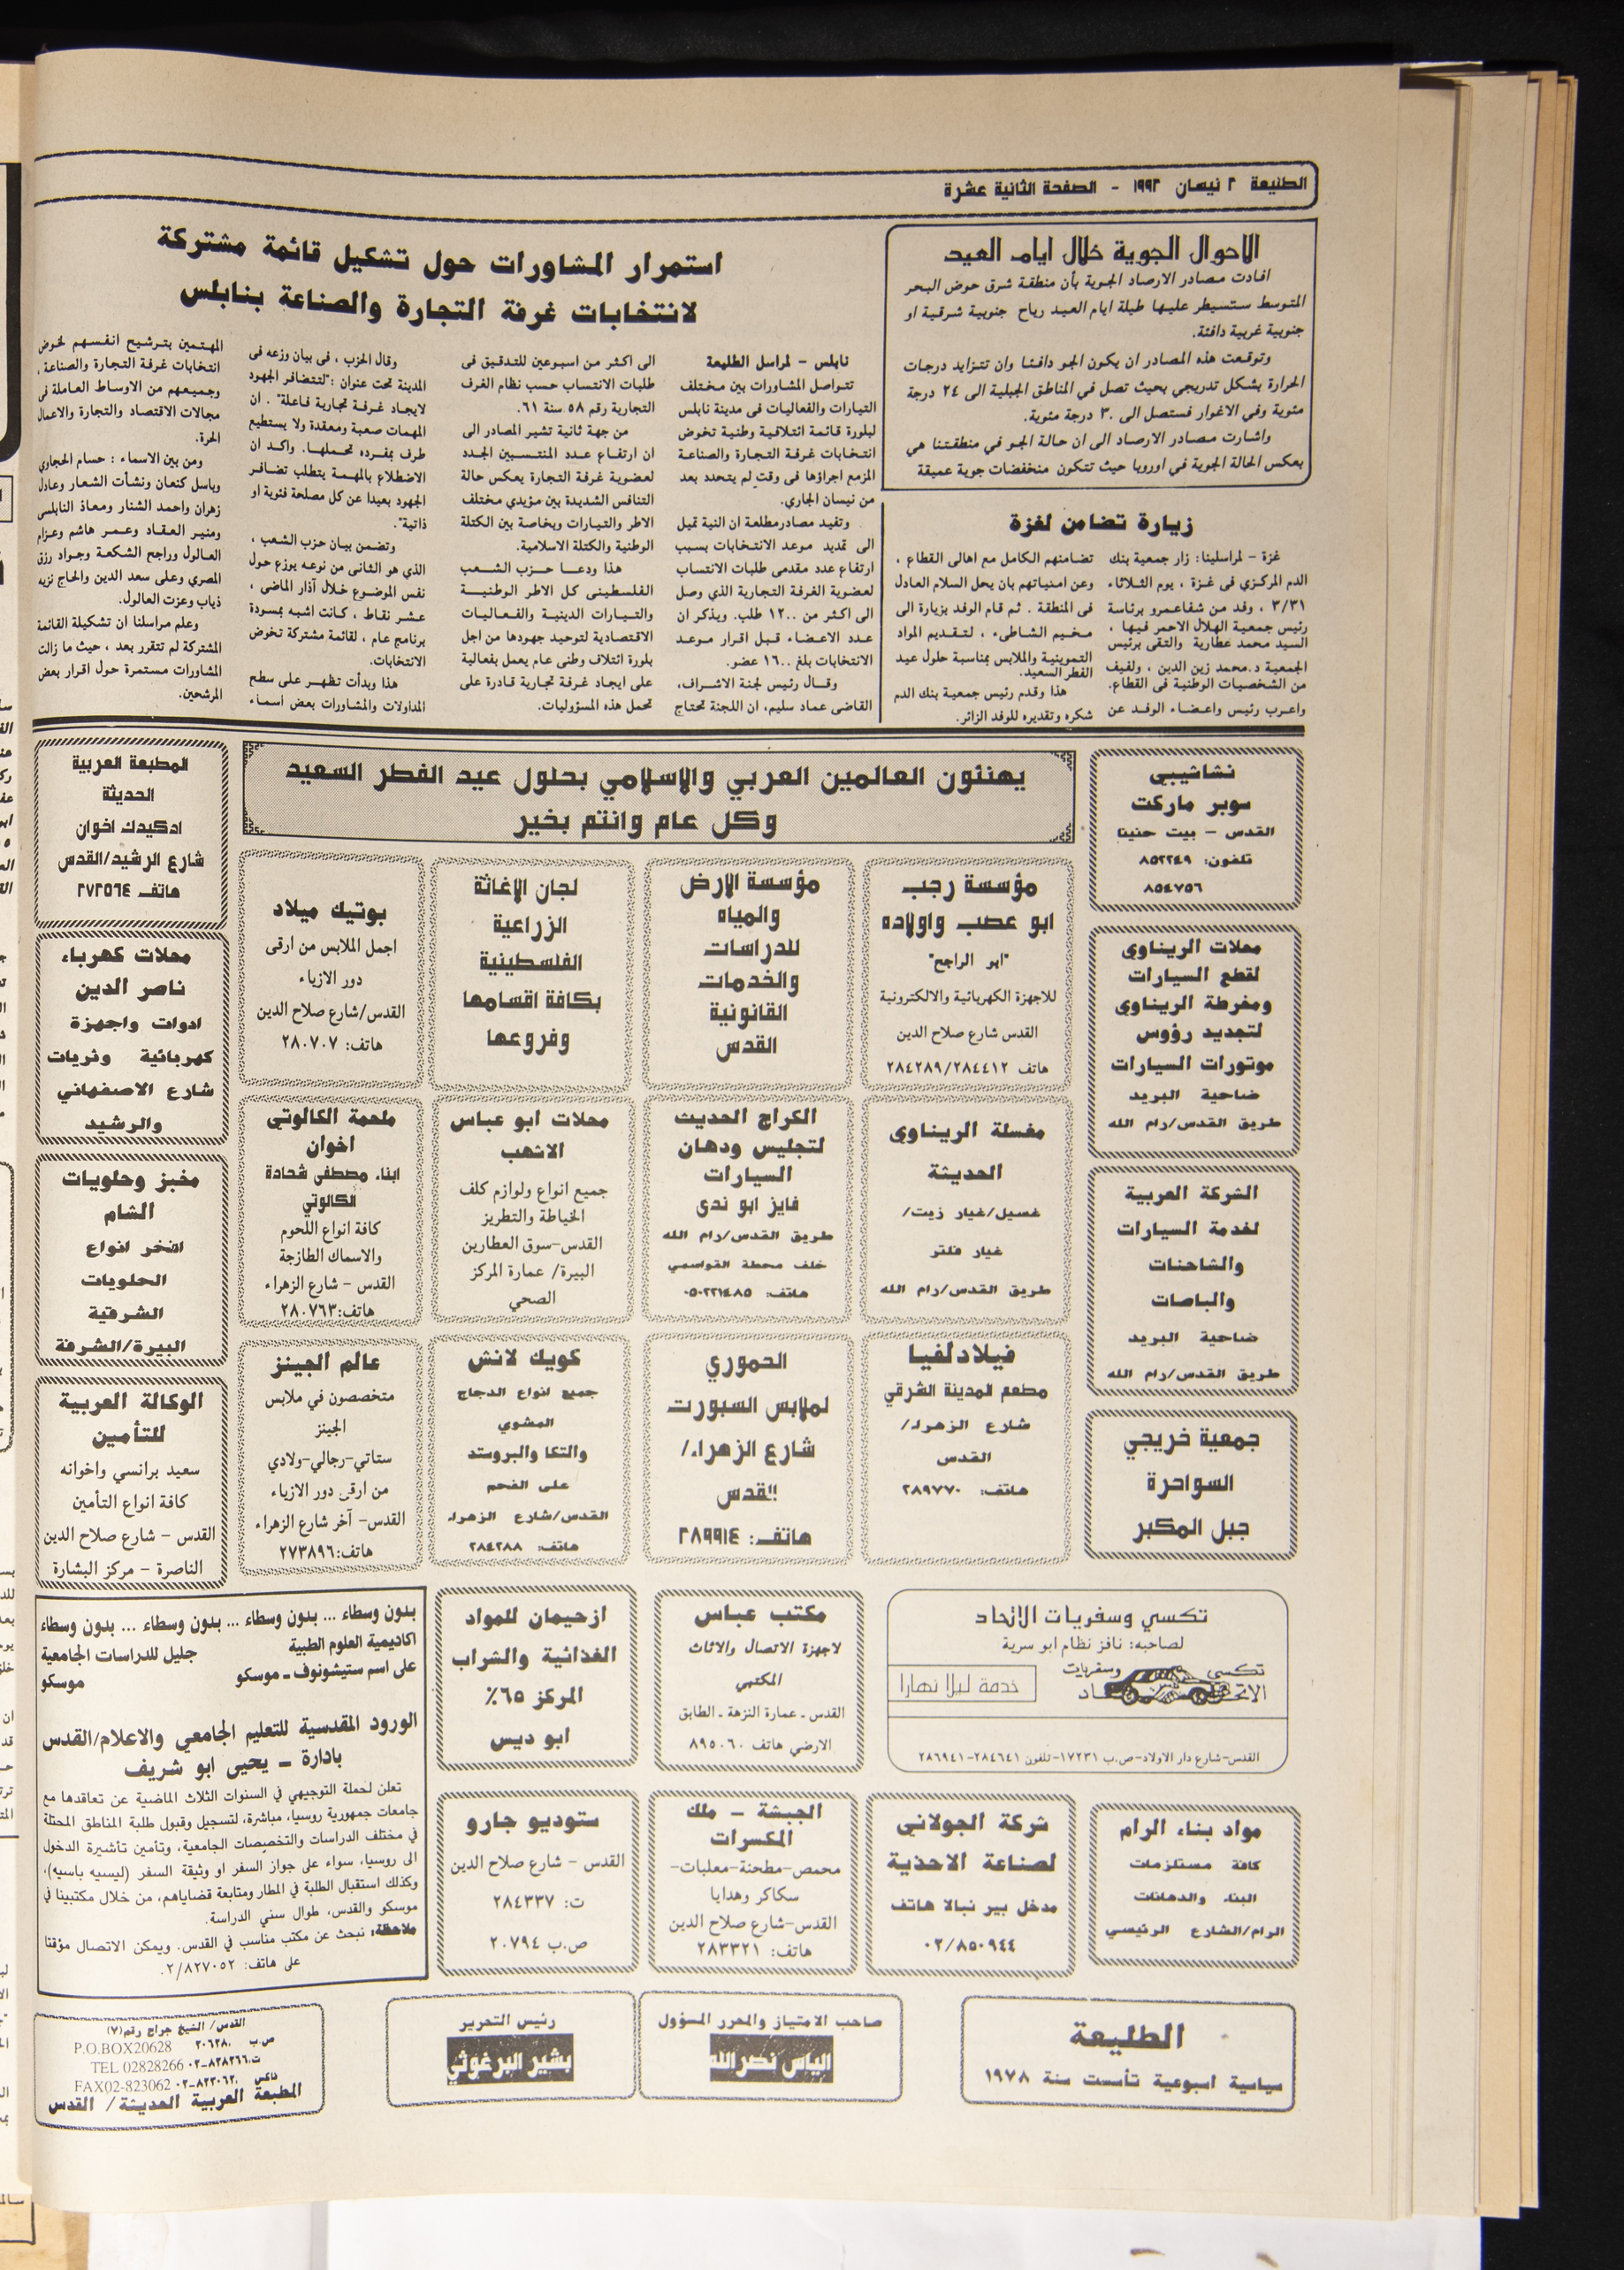 الطليعة ٢ نيسان ١٩٩٢ - الصفحة الثانية عشرة
الاحوال الجوية خلال ايام العيد
افادت مصادر الارصاد الجوية بأن منطقة شرق حوض البحر
المتوسط ستسيطر عليها طيلة ايام العيد رياح جنوبية شرقية او
جنوبية غربية دافئة.
وتوقعت هذه المصادر ان يكون الجو دافئا وان تتزايد درجات
الحرارة بشكل تدريجي بحيث تصل في المناطق الجبلية الى ٢٤ درجة
مئوية وفي الاغوار فستصل الى ٣٠ درجة مئوية.
واشارت مصادر الارصاد الى ان حالة الجو في منطقتنا هي
بعكس الحالة الجوية في اوروبا حيث تتكون منخفضات جوية عميقة
استمرار المشاورات حول تشكيل قائمة مشتركة
لانتخابات غرفة التجارة والصناعة بنابلس
نابلس - لمراسل الطليعة
تتواصل المشاورات بين مختلف
التيارات والفعاليات في مدينة نابلس
لبلورة قائمة ائتلافية وطنية تخوض
انتخابات غرفة التجارة والصناعة
المزمع اجراؤها في وقت لم يتحدد بعد
من نيسان الجاري.
وتفيد مصادر مطلعة ان النية تميل
الى تمديد موعد الانتخابات بسبب
ارتفاع عدد مقدمي طلبات الانتساب
لعضوية الغرفة التجارية الذي وصل
الى اكثر من ١٢٠٠ طلب. ويذكر ان
عدد الاعضاء قبل اقرار موعد
الانتخابات بلغ ١٦٠٠ عضو.
وقال رئيس لجنة الاشراف،
القاضي عماد سليم، ان اللجنة تحتاج
الى اكثر من اسبوعين للتدقيق في
طلبات الانتساب حسب نظام الغرف
التجارية رقم ٥٨ سنة ٦١.
من جهة ثانية تشير المصادر الى
ان ارتفاع عدد المنتسبين الجدد
لعضوية غرفة التجارة يعكس حالة
التنافس الشديدة بين مؤيدي مختلف
الاطر والتيارات وبخاصة بين الكتلة
الوطنية والكتلة الاسلامية.
هذا ودعا حزب الشعب
الفلسطيني كل الاطر الوطنية
والتيارات الدينية والفعاليات
الاقتصادية لتوحيد جهودها من اجل
بلورة ائتلاف وطني عام يعمل بفعالية
على ايجاد غرفة تجارية قادرة على
تحمل هذه المسؤوليات.
وقال الحزب ، في بيان وزعه في
المدينة تحت عنوان :"لتتضافر الجهود
لايجاد غرفة تجارية فاعلة" . ان
المهمات صعبة ومعقدة ولا يستطيع
طرف بمفرده تحملها. واكد ان
الاضطلاع بالمهمة يتطلب تضافر
الجهود بعيدا عن كل مصلحة فئوية او
ذاتية".
وتضمن بيان حزب الشعب ،
الذي هو الثاني من نوعه يوزع حول
نفس الموضوع خلال آذار الماضي ،
عشر نقاط ، كانت اشبه بمسودة
برنامج عام ، لقائمة مشتركة تخوض
الانتخابات.
هذا وبدأت تظهر على سطح
المداولات والمشاورات بعض اسماء
المهتمين بترشيح انفسهم لخوض
انتخابات غرفة التجارة والصناعة ،
وجميعهم من الاوساط العاملة في
مجالات الاقتصاد والتجارة والاعمال
الحرة.
ومن بين الاسماء : حسام الحجاوي
وباسل كنعان ونشأت الشعار وعادل
زهران واحمد الشنار ومعاذ النابلسي
ومنير العقاد وعمر هاشم وعزام
العالول وراجح الشكعة وجواد رزق
المصري وعلي سعد الدين والحاج نزيه
ذياب وعزت العالول.
وعلم مراسلنا ان تشكيلة القائمة
المشتركة لم تتقرر بعد ، حيث ما زالت
المشاورات مستمرة حول اقرار بعض
المرشحين.
زيارة تضامن لغزة
غزة - لمراسلينا: زار جمعية بنك
الدم المركزي في غزة ، يوم الثلاثاء
٣/٣١ ، وفد من شفاعمرو برئاسة
رئيس جمعية الهلال الاحمر فيها ،
السيد محمد عطارية والتقى برئيس
الجمعية د.محمد زين الدين ، ولفيف
من الشخصيات الوطنية في القطاع.
واعرب رئيس واعضاء الوفد عن
تضامنهم الكامل مع اهالي القطاع ،
وعن امنياتهم بان يحل السلام العادل
في المنطقة . ثم قام الوفد بزيارة الى
مخيم الشاطىء ، لتقديم المواد
التموينية والملابس بمناسبة حلول عيد
الفطر السعيد.
هذا وقدم رئيس جمعية بنك الدم
شكره وتقديره للوفد الزائر.
يهنئون العالمين العربي والإسلامي بحلول عيد الفطر السعيد
وكل عام وانتم بخير
نشاشيبي
سوبر ماركت
القدس - بيت حنينا
تلفون: ٨٥٢٢٤٩
٨٥٤٧٥٦
محلات الريناوي
لقطع السيارات
ومخرطة الريناوي
لتجديد رؤوس
موتورات السيارات
ضاحية البريد
طريق القدس/رام الله
الشركة العربية
لخدمة السيارات
والشاحنات
والباصات
ضاحية البريد
طريق القدس/رام الله
جمعية خريجي
السواحرة
جبل المكبر
مؤسسة رجب
ابو عصب واولاده
"ابو الراجح"
للاجهزة الكهربائية والالكترونية
القدس شارع صلاح الدين
هاتف ٢٨٤٢٨٩/٢٨٤٤١٢
مؤسسة الارض
والمياه
للدراسات
والخدمات
القانونية
القدس
لجان الإغاثة
الزراعية
الفلسطينية
بكافة اقسامها
وفروعها
بوتيك ميلاد
اجمل الملابس من ارقى
دور الازياء
القدس/شارع صلاح الدين
هاتف: ٢٨٠٧٠٧
المطبعة العربية
الحديثة
ادكيدك اخوان
شارع الرشيد/القدس
هاتف ٢٧٢٥٦٤
محلات كهرباء
ناصر الدين
ادوات واجهزة
كهربائية وثريات
شارع الاصفهاني
والرشيد
مغسلة الريناوي
الحديثة
غسيل/غيار زيت/
غيار فلتر
طريق القدس/رام الله
الكراج الحديث
لتجليس ودهان
السيارات
فايز ابو ندى
طريق القدس/رام الله
خلف محطة القواسمي
هاتف: ٠٥٠٢٢١٤٨٥
محلات ابو عباس
الاشهب
جميع انواع ولوازم كلف
الخياطة والتطريز
القدس-سوق العطارين
البيرة/ عمارة المركز
الصحي
ملحمة الكالوتي
اخوان
ابناء مصطفى شحادة
الكالوتي
كافة انواع اللحوم
والاسماك الطازجة
القدس - شارع الزهراء
هاتف:٢٨٠٧٦٣
مخبز وحلويات
الشام
افخر انواع
الحلويات
الشرقية
البيرة/الشرفة
فيلادلفيا
مطعم المدينة الشرقي
شارع الزهراء/
القدس
هاتف: ٢٨٩٧٧٠
الحموري
لملابس السبورت
شارع الزهراء/
القدس
هاتف: ٢٨٩٩١٤
كويك لانش
جميع انواع الدجاج
المشوي
والتكا والبروستد
على الفحم
القدس/شارع الزهراء
هاتف: ٢٨٤٢٨٨
عالم الجينز
متخصصون في ملابس
الجينز
ستاتي-رجالي-ولادي
من ارقى دور الازياء
القدس- آخر شارع الزهراء
هاتف:٢٧٣٨٩٦
الوكالة العربية
للتأمين
سعيد برانسي واخوانه
كافة انواع التأمين
القدس - شارع صلاح الدين
الناصرة - مركز البشارة
تكسي وسفريات الاتحاد
لصاحبه: نافز نظام ابو سرية
تكسي وسفريات
الاتحاد
خدمة ليلا نهارا
القدس-شارع دار الاولاد-ص.ب ١٧٢٣١-تلفون ٢٨٤٦٤١-٢٨٦٩٤١
مكتب عباس
لاجهزة الاتصال والاثاث
المكتبي
القدس ـ عمارة النزهة ـ الطابق
الارضي هاتف ٨٩٥٠٦٠
ازحيمان للمواد
الغذائية والشراب
المركز ٦٥٪
ابو ديس
بدون وسطاء ... بدون وسطاء ... بدون وسطاء ... بدون وسطاء
اكاديمية العلوم الطبية
على اسم ستيشونوف ـ موسكو
جليل للدراسات الجامعية
موسكو
الورود المقدسية للتعليم الجامعي والاعلام/القدس
بادارة ـ يحيى ابو شريف
تعلن لحملة التوجيهي في السنوات الثلاث الماضية عن تعاقدها مع
جامعات جمهورية روسيا، مباشرة، لتسجيل وقبول طلبة المناطق المحتلة
في مختلف الدراسات والتخصصات الجامعية، وتأمين تأشيرة الدخول
الى روسيا، سواء على جواز السفر او وثيقة السفر (ليسيه باسيه)،
وكذلك استقبال الطلبة في المطار ومتابعة قضاياهم، من خلال مكتبينا في
موسكو والقدس، طوال سني الدراسة.
ملاحظة: نبحث عن مكتب مناسب في القدس. ويمكن الاتصال مؤقتا
على هاتف: ٠٢/٨٢٧٠٥٢.
مواد بناء الرام
كافة مستلزمات
البناء والدهانات
الرام/الشارع الرئيسي
شركة الجولاني
لصناعة الاحذية
مدخل بير نبالا هاتف
٠٢/٨٥٠٩٤٤
الجبشة - ملك
المكسرات
محمص-مطحنة-معلبات-
سكاكر وهدايا
القدس-شارع صلاح الدين
هاتف: ٢٨٣٣٢١
ستوديو جارو
القدس - شارع صلاح الدين
ت: ٢٨٤٣٣٧
ص.ب ٢٠٧٩٤
الطليعة
سياسية اسبوعية تأسست سنة ١٩٧٨
صاحب الامتياز والمحرر المسؤول
الياس نصرالله
رئيس التحرير
بشير البرغوثي
القدس/ الشيخ جراح رقم(٧)
ص.ب ٢٠٦٢٨ P.O.BOX20628
ت.٠٢-٨٢٨٢٦٦ TEL 02828266
فاكس ٠٢-٨٢٣٠٦٢ FAX02-823062
المطبعة العربية الحديثة/ القدس